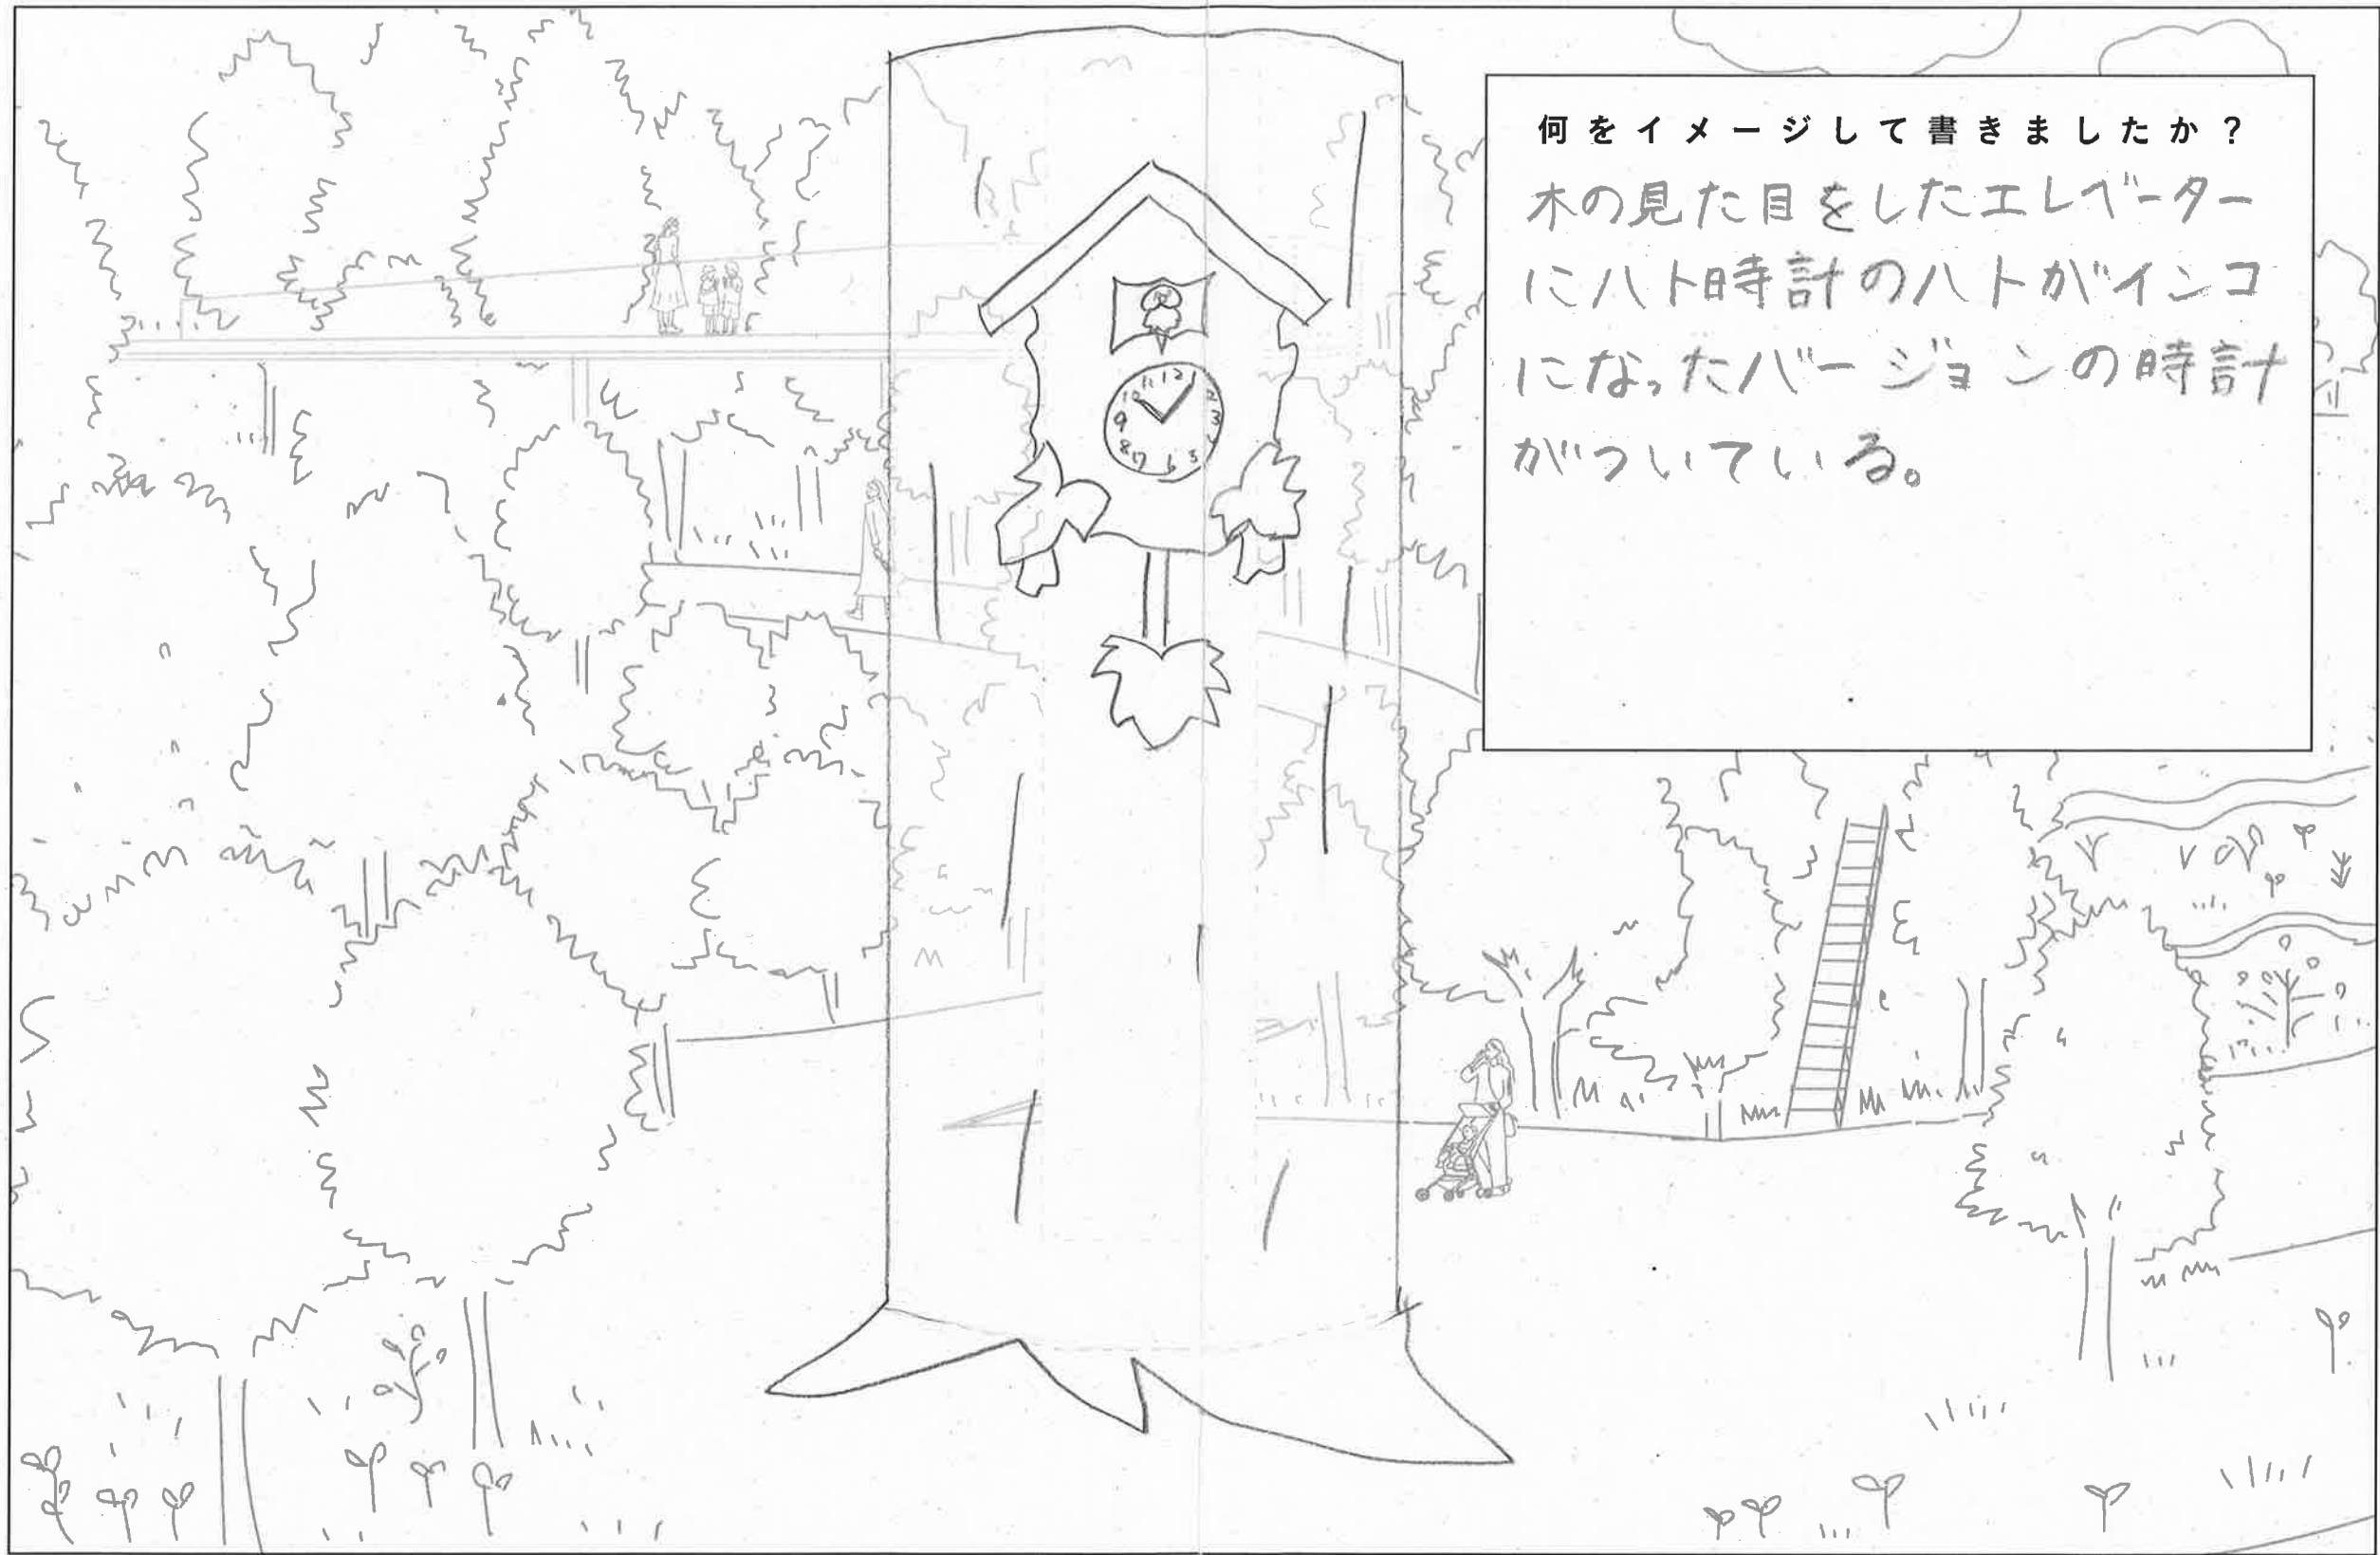 何をイメージして書きましたか？
木の見た目をしたエレベーター
にハト時計のハトがインコ
になったバージョンの時計
がついている。
11 12
10 2
9 3
8 7 6 5